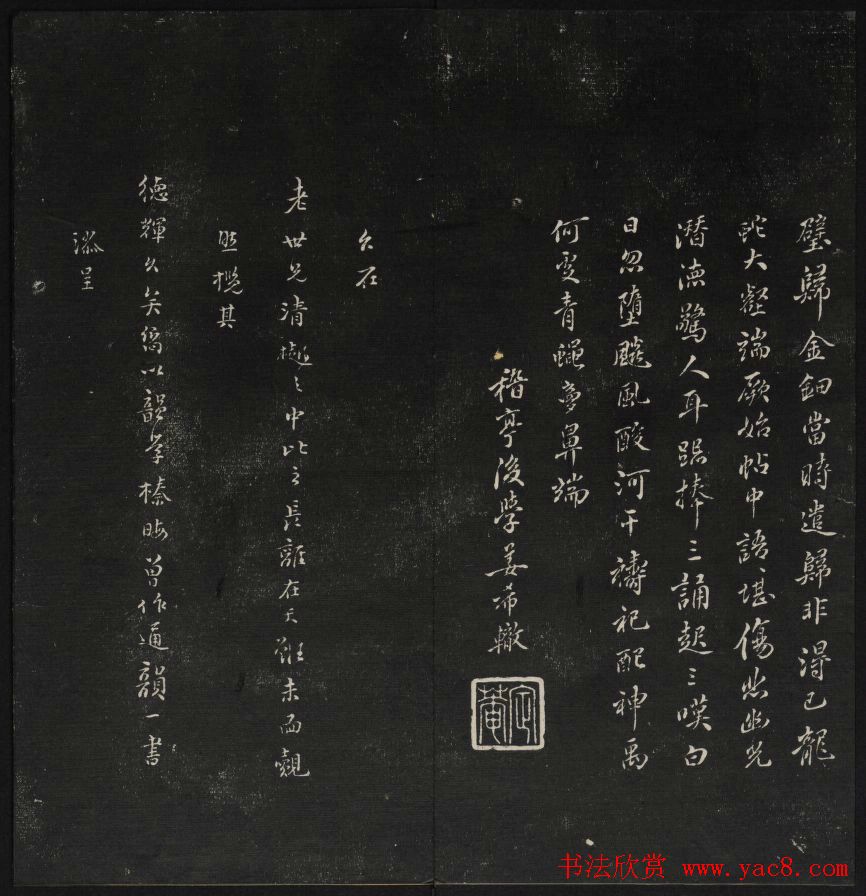 璧歸金鈿當時遣歸非得已龍
蛇大壑端厥始帖中語堪傷悲幽光
潛德驚人耳踞捧三誦起三嘆白
日忽墮颷風酸河干禱祀配神禹
何更青蠅夢鼻端
稽亭後學姜希轍
定菴
久在
老世兄清樾之中此之長離在天雖未面覿
照攬其
德輝久矣第以韻學榛晦曾作通韻一書
添呈
书法欣赏 www.yac8.com